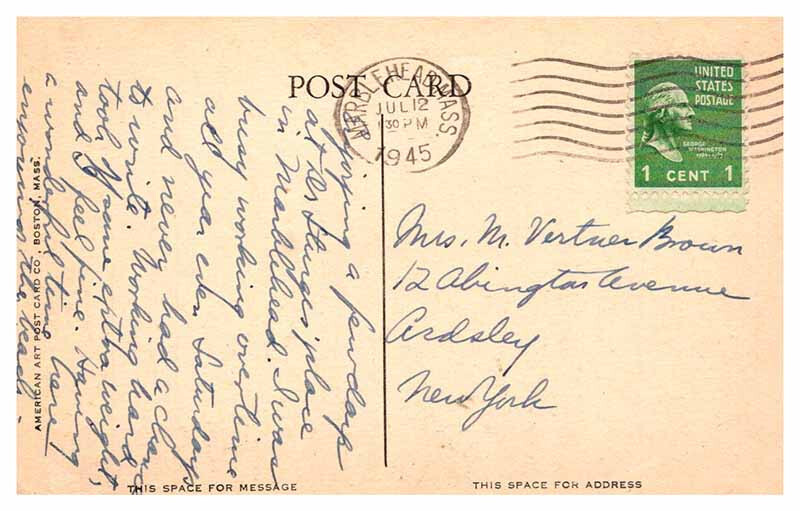 POST CARD
MARBLEHEAD, MASS.
JUL 12
130 PM
1945
UNITED
STATES
POSTAGE
GEORGE
WASHINGTON
1 CENT 1
Enjoying a few days
at Dr Sturgis' place
in Marblehead. I was
busy working overtime
all year even Saturdays
and never had a chance
to write. Working hard
took off some extra weight,
and I feel fine. Having
a wonderful time here
enjoying the beach.
Mrs. M. Vertner Brown
12 Abington Avenue
Ardsley
New York
AMERICAN ART POST CARD CO., BOSTON, MASS.
THIS SPACE FOR MESSAGE
THIS SPACE FOR ADDRESS